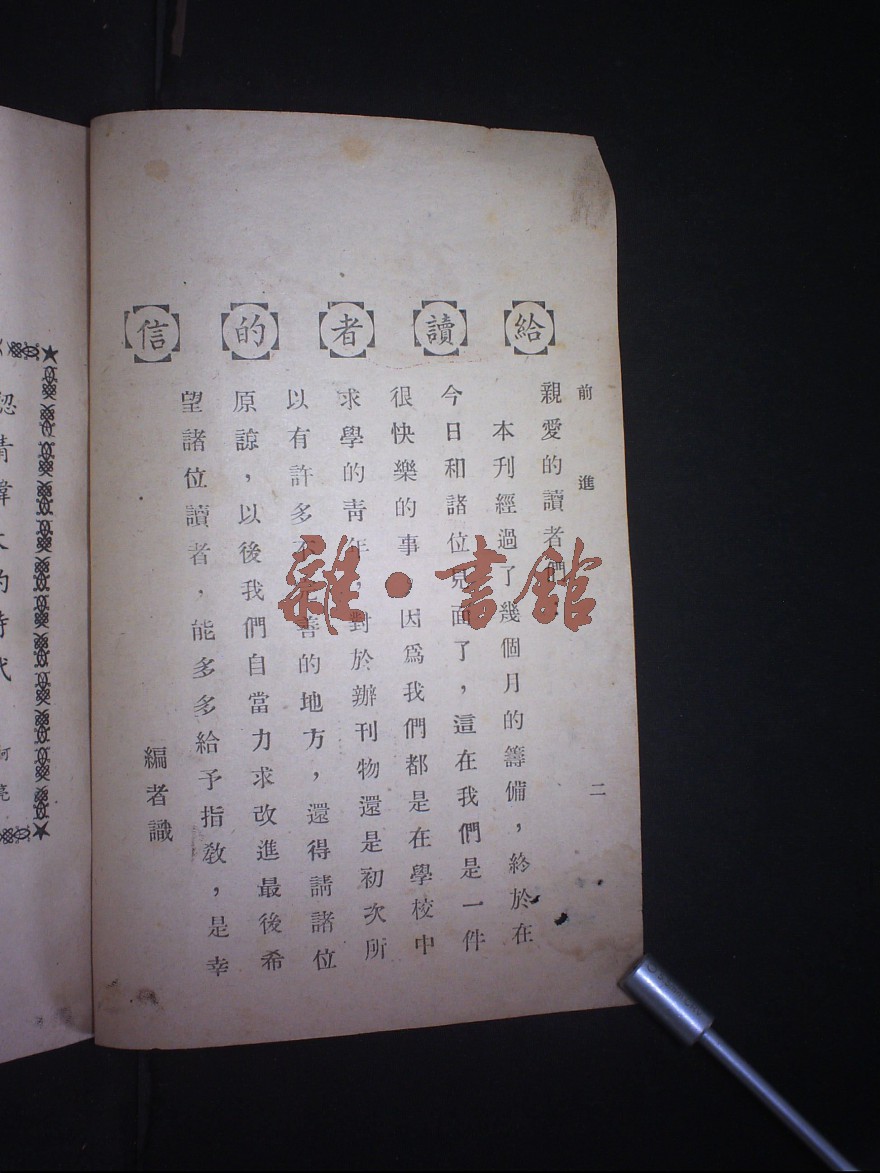 給讀者的信
前進 二
親愛的讀者們
本刊經過了幾個月的籌備，終於在
今日和諸位見面了，這在我們是一件
很快樂的事 因爲我們都是在學校中
求學的靑年，對於辦刊物還是初次所
以有許多不 善的地方，還得請諸位
原諒，以後我們自當力求改進最後希
望諸位讀者，能多多給予指敎，是幸
編者識
的時代
雜·書館